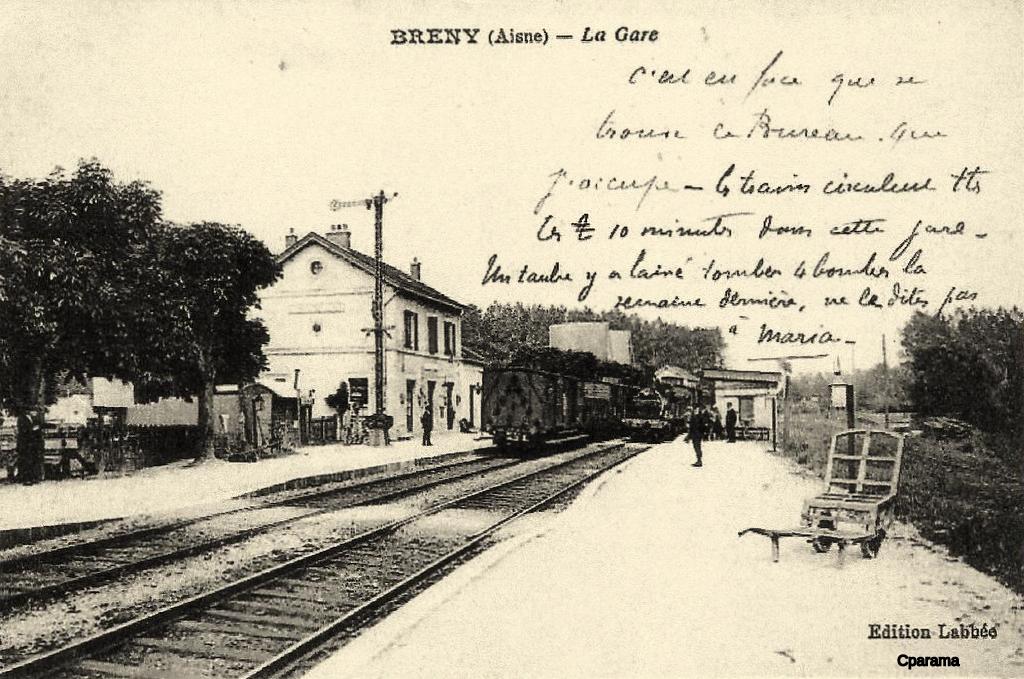 BRENY (Aisne) — La Gare
c'est en face que se
trouve le Bureau que
j'occupe — les trains circulent tts
les 10 minutes dans cette gare —
Un taube y a laissé tomber 4 bombes la
semaine dernière, ne le dites pas
à Maria —
Edition Labbée
Cparama